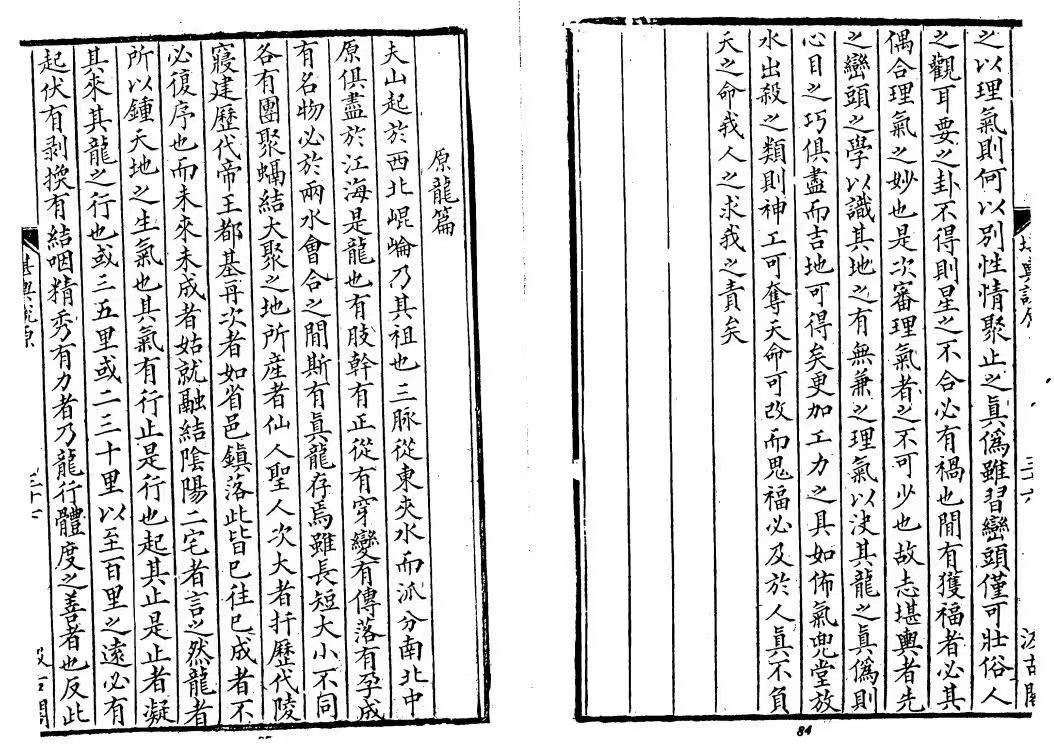 之以理氣則何以別性情聚止之真僞雖習巒頭僅可壯俗人
之觀耳要之卦不得則星之不合必有禍也間有獲福者必其
偶合理氣之妙也是次審理氣者之不可少也故志堪輿者先
之巒頭之學以識其地之有無兼之理氣以決其龍之真僞則
心目之巧俱盡而吉地可得矣更加工力之具如佈氣兜堂放
水出殺之類則神工可奪天命可改而鬼福必及於人真不負
天之命我人之求我之責矣
84
原龍篇
夫山起於西北崐崘乃其祖也三脉從東夾水而派分南北中
原俱盡於江海是龍也有肢幹有正從有穿變有傳落有孕成
有名物必於兩水會合之間斯有真龍存焉雖長短大小不同
各有團聚蝸結大聚之地所產者仙人聖人次大者扦歷代陵
寢建歷代帝王都基再次者如省邑鎮落此皆已往已成者不
必復序也而未來未成者姑就融結陰陽二宅者言之然龍者
所以鍾天地之生氣也其氣有行止是行也起其止是止者凝
其來其龍之行也或三五里或二三十里以至百里之遠必有
起伏有剥換有結咽精秀有力者乃龍行體度之善者也反此